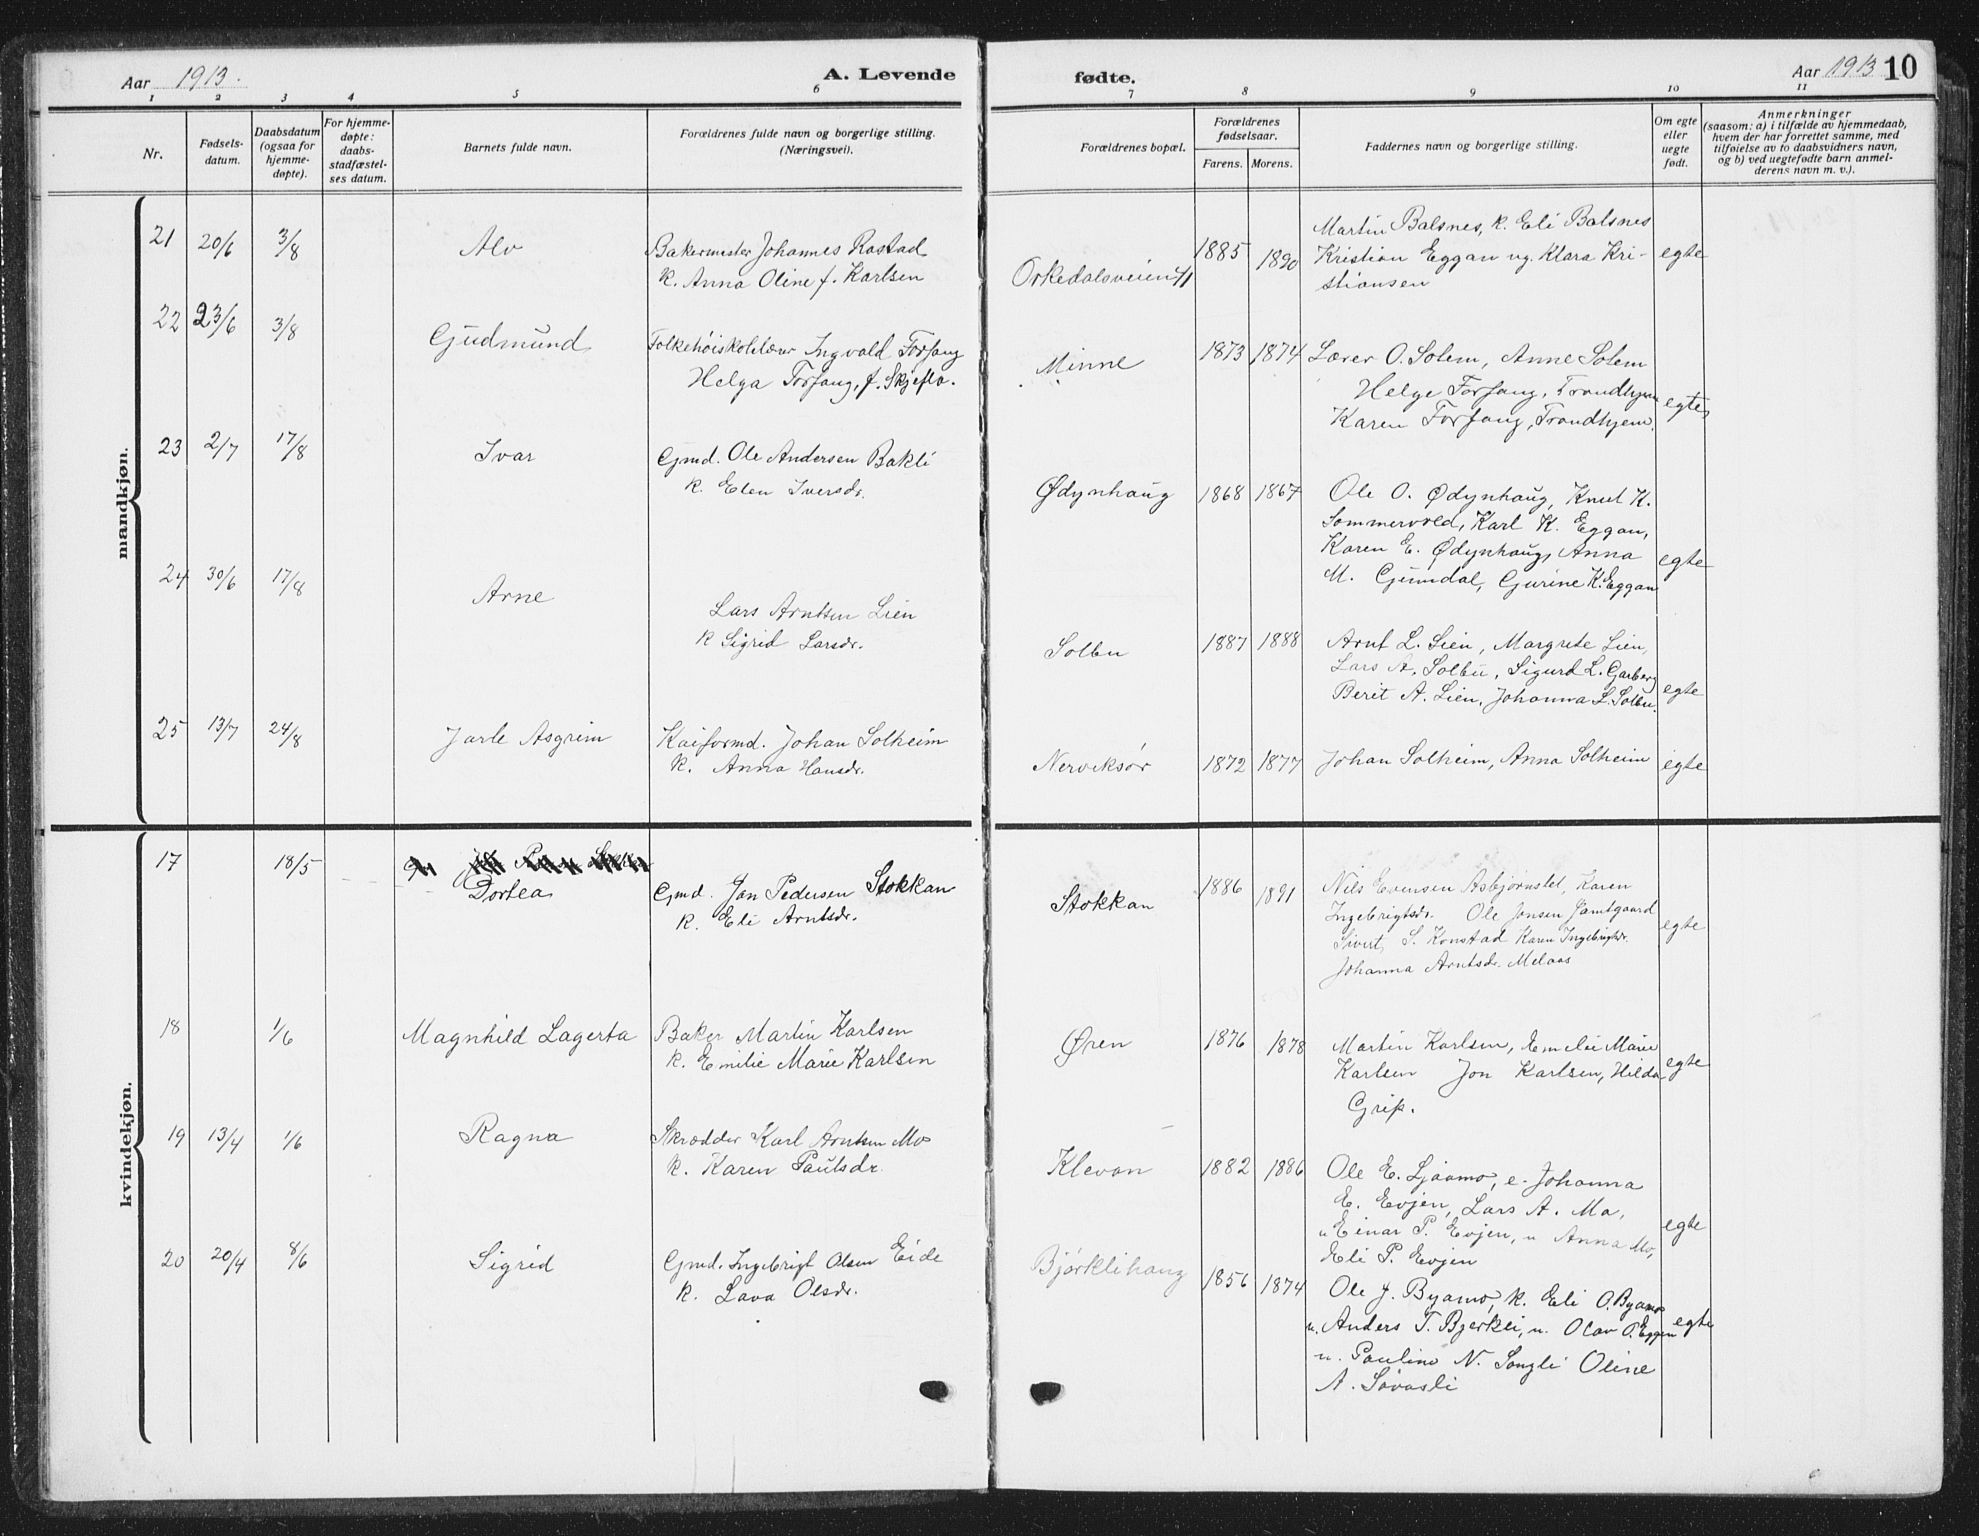 Aar 1913.
A. Levende
fødte.
Aar 1913
10
1 2 3 4 5 6 7 8 9 10 11
Nr.
Fødsels-
datum.
Daabsdatum
(ogsaa for
hjemme-
døpte).
For hjemme-
døpte:
daabs-
stadfæstel-
ses datum.
Barnets fulde navn.
Forældrenes fulde navn og borgerlige stilling.
(Næringsvei).
Forældrenes bopæl.
Forældrenes
fødselsaar.
Farens. Morens.
Faddernes navn og borgerlige stilling.
Om egte
eller
uegte
født.
Anmerkninger
(saasom: a) i tilfælde av hjemmedaab,
hvem der har forrettet samme, med
tilføielse av to daabsvidners navn,
og b) ved uegtefødte barn anmel-
derens navn m. v.).
mandkjøn.
21 20/6 3/8 Alv
Bakermester Johannes Rostad
k. Anna Oline f. Karlsen
Orkedalsveien 41
1885 1890
Martin Balsnes, k. Eli Balsnes
Kristian Eggan ug. Klara Kri-
stiansen
egte
22 23/6 3/8 Gudmund
Folkehøiskolelærer Ingvald Forfang
Helga Forfang, f. Skjeflo.
Minne
1873 1874
Lærer O. Solem, Anne Solem
Helge Forfang, Trondhjem
Karen Forfang, Trondhjem.
egte
23 2/7 17/8 Ivar
Gmd. Ole Andersen Bakli
k. Elen Iversdr.
Ødynhaug
1868 1867
Ole O. Ødynhaug, Knut K.
Sommervold, Karl K. Eggan,
Karen E. Ødynhaug, Anna
M. Gumdal, Gurine K. Eggan
egte
24 30/6 17/8 Arne
Lars Arntsen Lien
k Sigrid Larsdr.
Solbu
1887 1888
Arnt L. Lien, Margrete Lien,
Lars A. Solbu, Sigurd L. Garberg
Berit A. Lien, Johanna L. Solbu.
egte
25 13/7 24/8 Jarle Asgrim
Kaiformd. Johan Solheim
k. Anna Hansdr.
Nerviksør
1872 1877
Johan Solheim, Anna Solheim
egte
kvindekjøn.
17 18/5
Dortea
Gmd. Jon Pedersen Stokkan
k. Eli Arntsdr.
Stokkan
1886 1891
Nils Evensen Asbjørnslet, Karen
Ingebrigtsdr. Ole Jonsen Jamtgaard
Sivert S. Konstad Karen Ingebrigtsdr.
Johanna Arntsdr. Melaas
egte
18 1/6 Magnhild Lagerta
Baker Martin Karlsen
k. Emilie Marie Karlsen
Øren
1876 1878
Martin Karlsen, Emelie Marie
Karlsen Jon Karlsen, Hilda
Grip.
egte
19 13/4 1/6 Ragna
Skrædder Karl Arntsen Mo
k. Karen Paulsdr.
Klevan
1882 1886
Ole E. Ljaamo, e. Johanna
E. Evjen, Lars A. Mo,
u Einar P. Evjen, u Anna Mo,
Eli P. Evjen
egte
20 20/4 8/6 Sigrid
Gmd. Ingebrigt Olsen Eide
k. Lava Olsdr.
Bjørklihaug
1856 1874
Ole J. Byamo, k. Eli O. Byamo
u. Anders T. Bjerkli, u. Olav O. Eggen
u. Pauline N. Songli Oline
A. Sovasli
egte